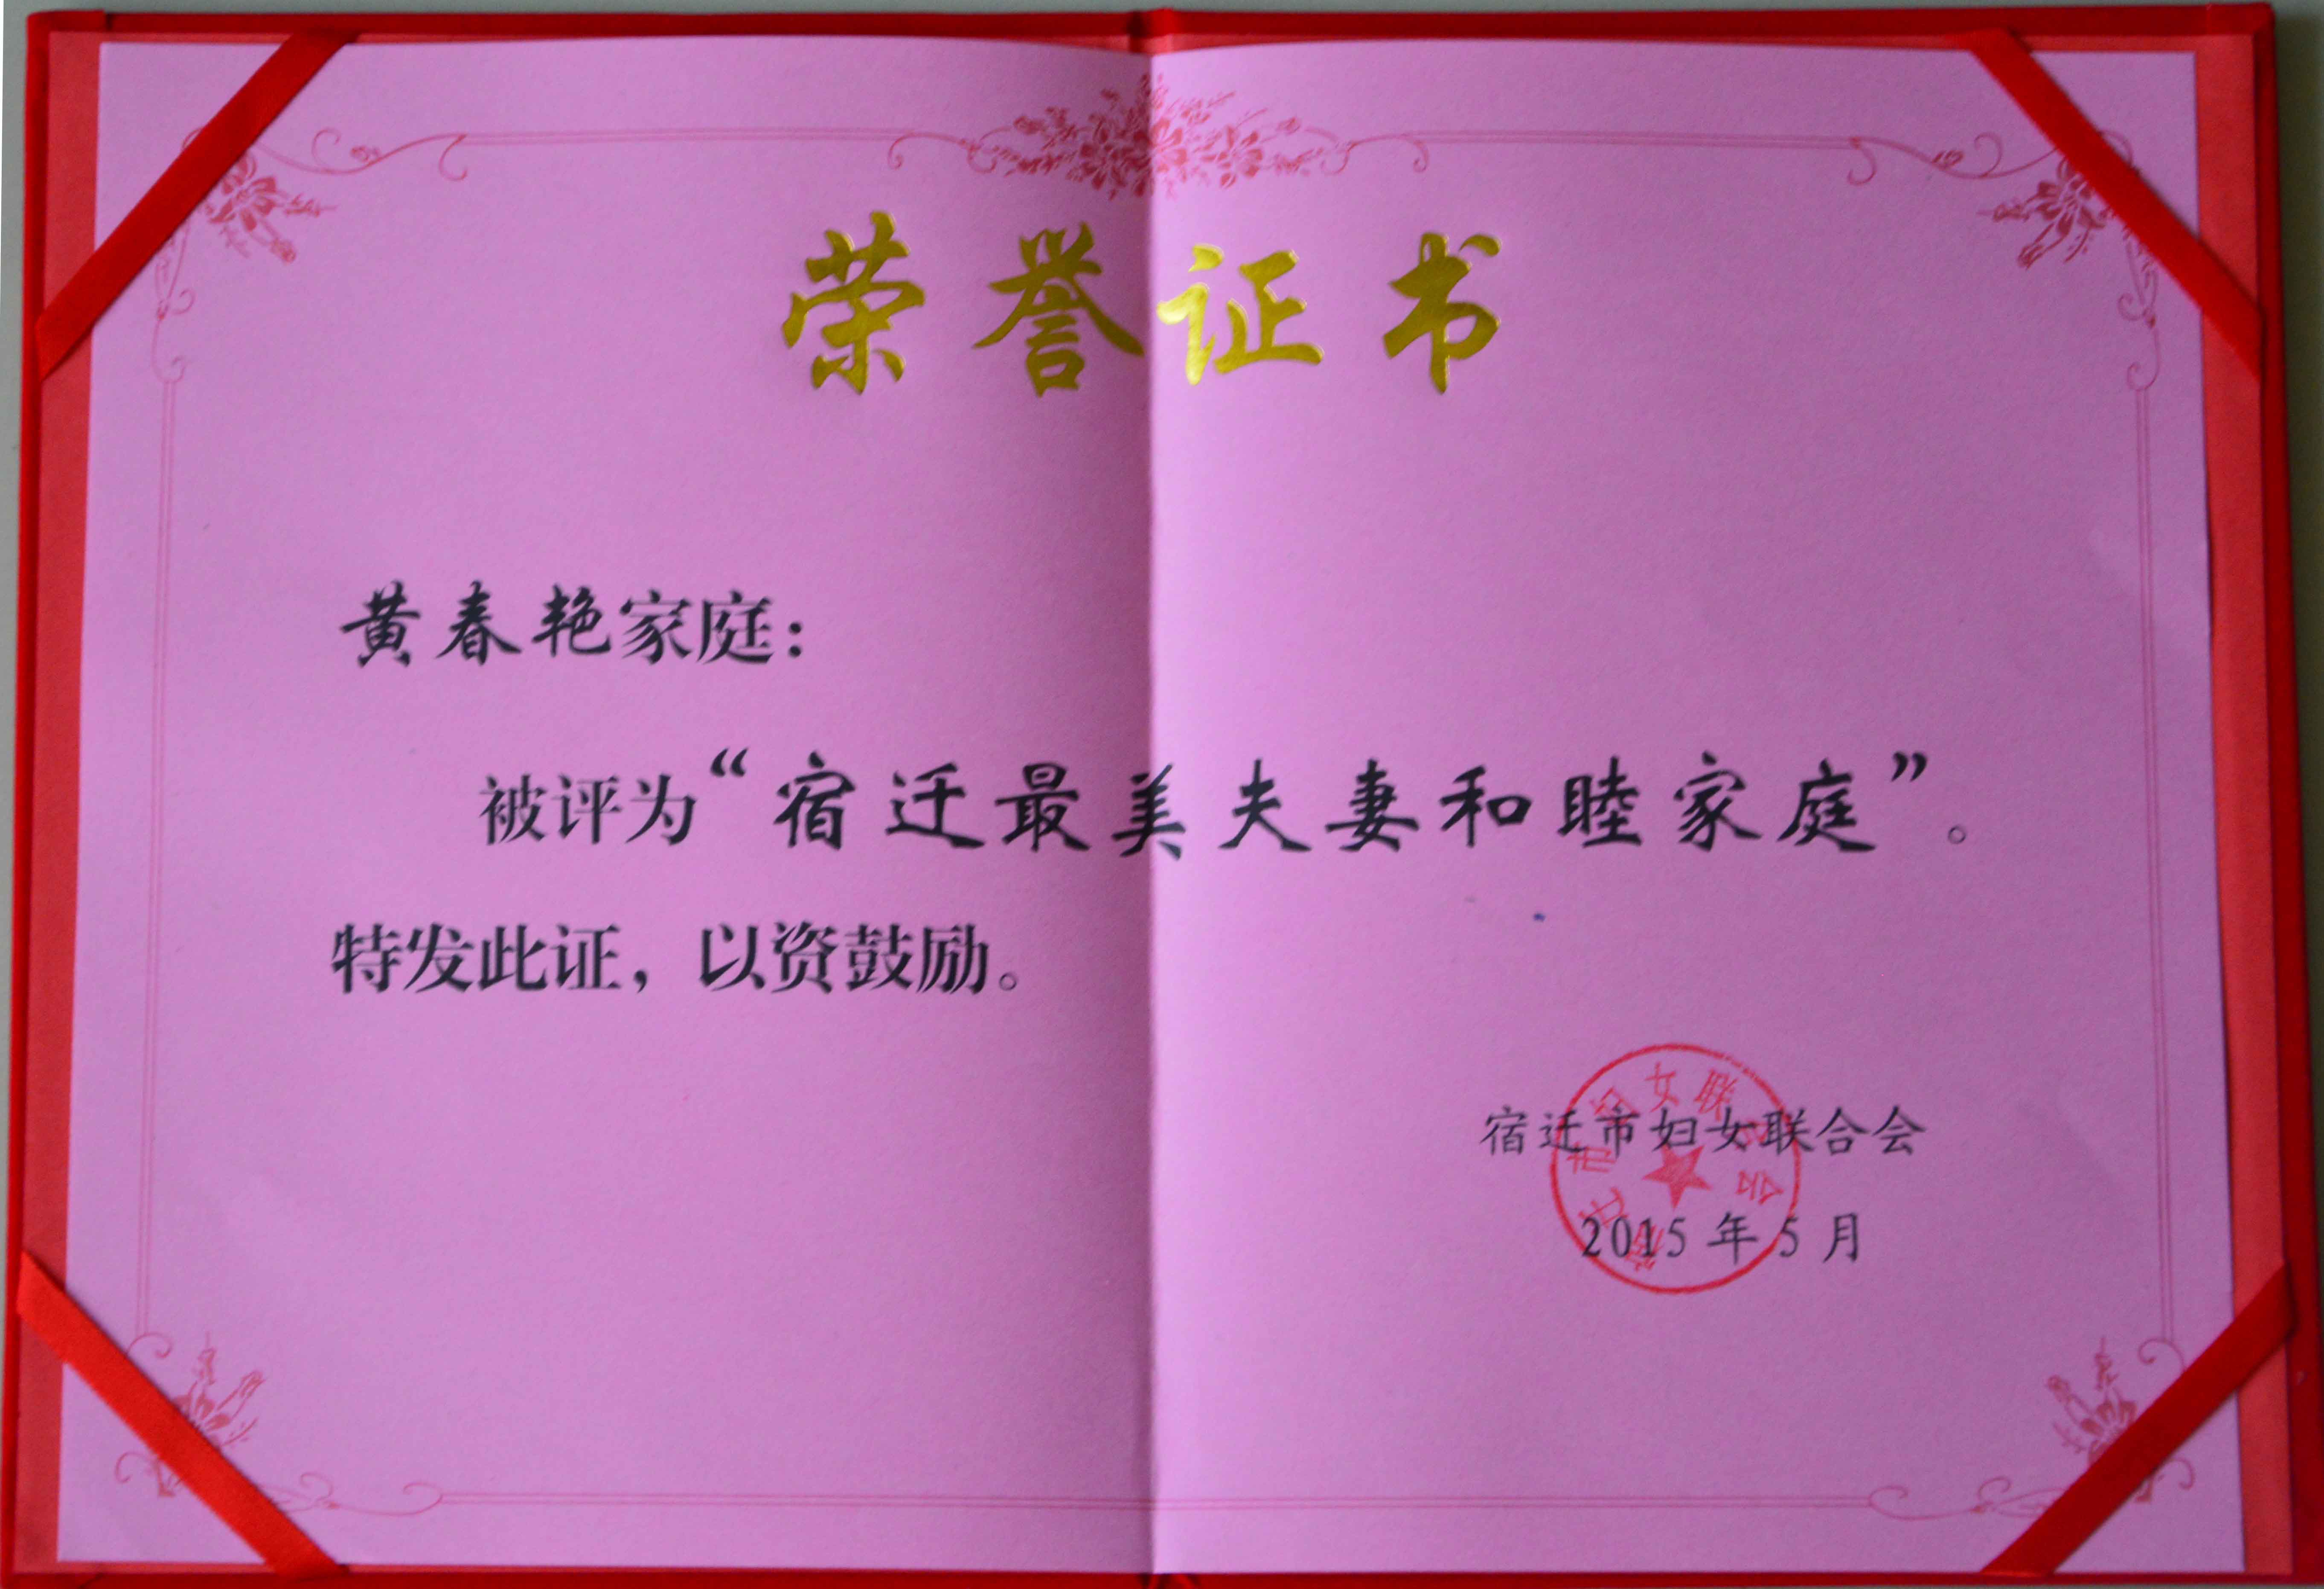 荣誉证书
黄春艳家庭：
被评为“宿迁最美夫妻和睦家庭”。
特发此证，以资鼓励。
宿迁市妇女联合会
2015年5月
宿迁市妇女联合会